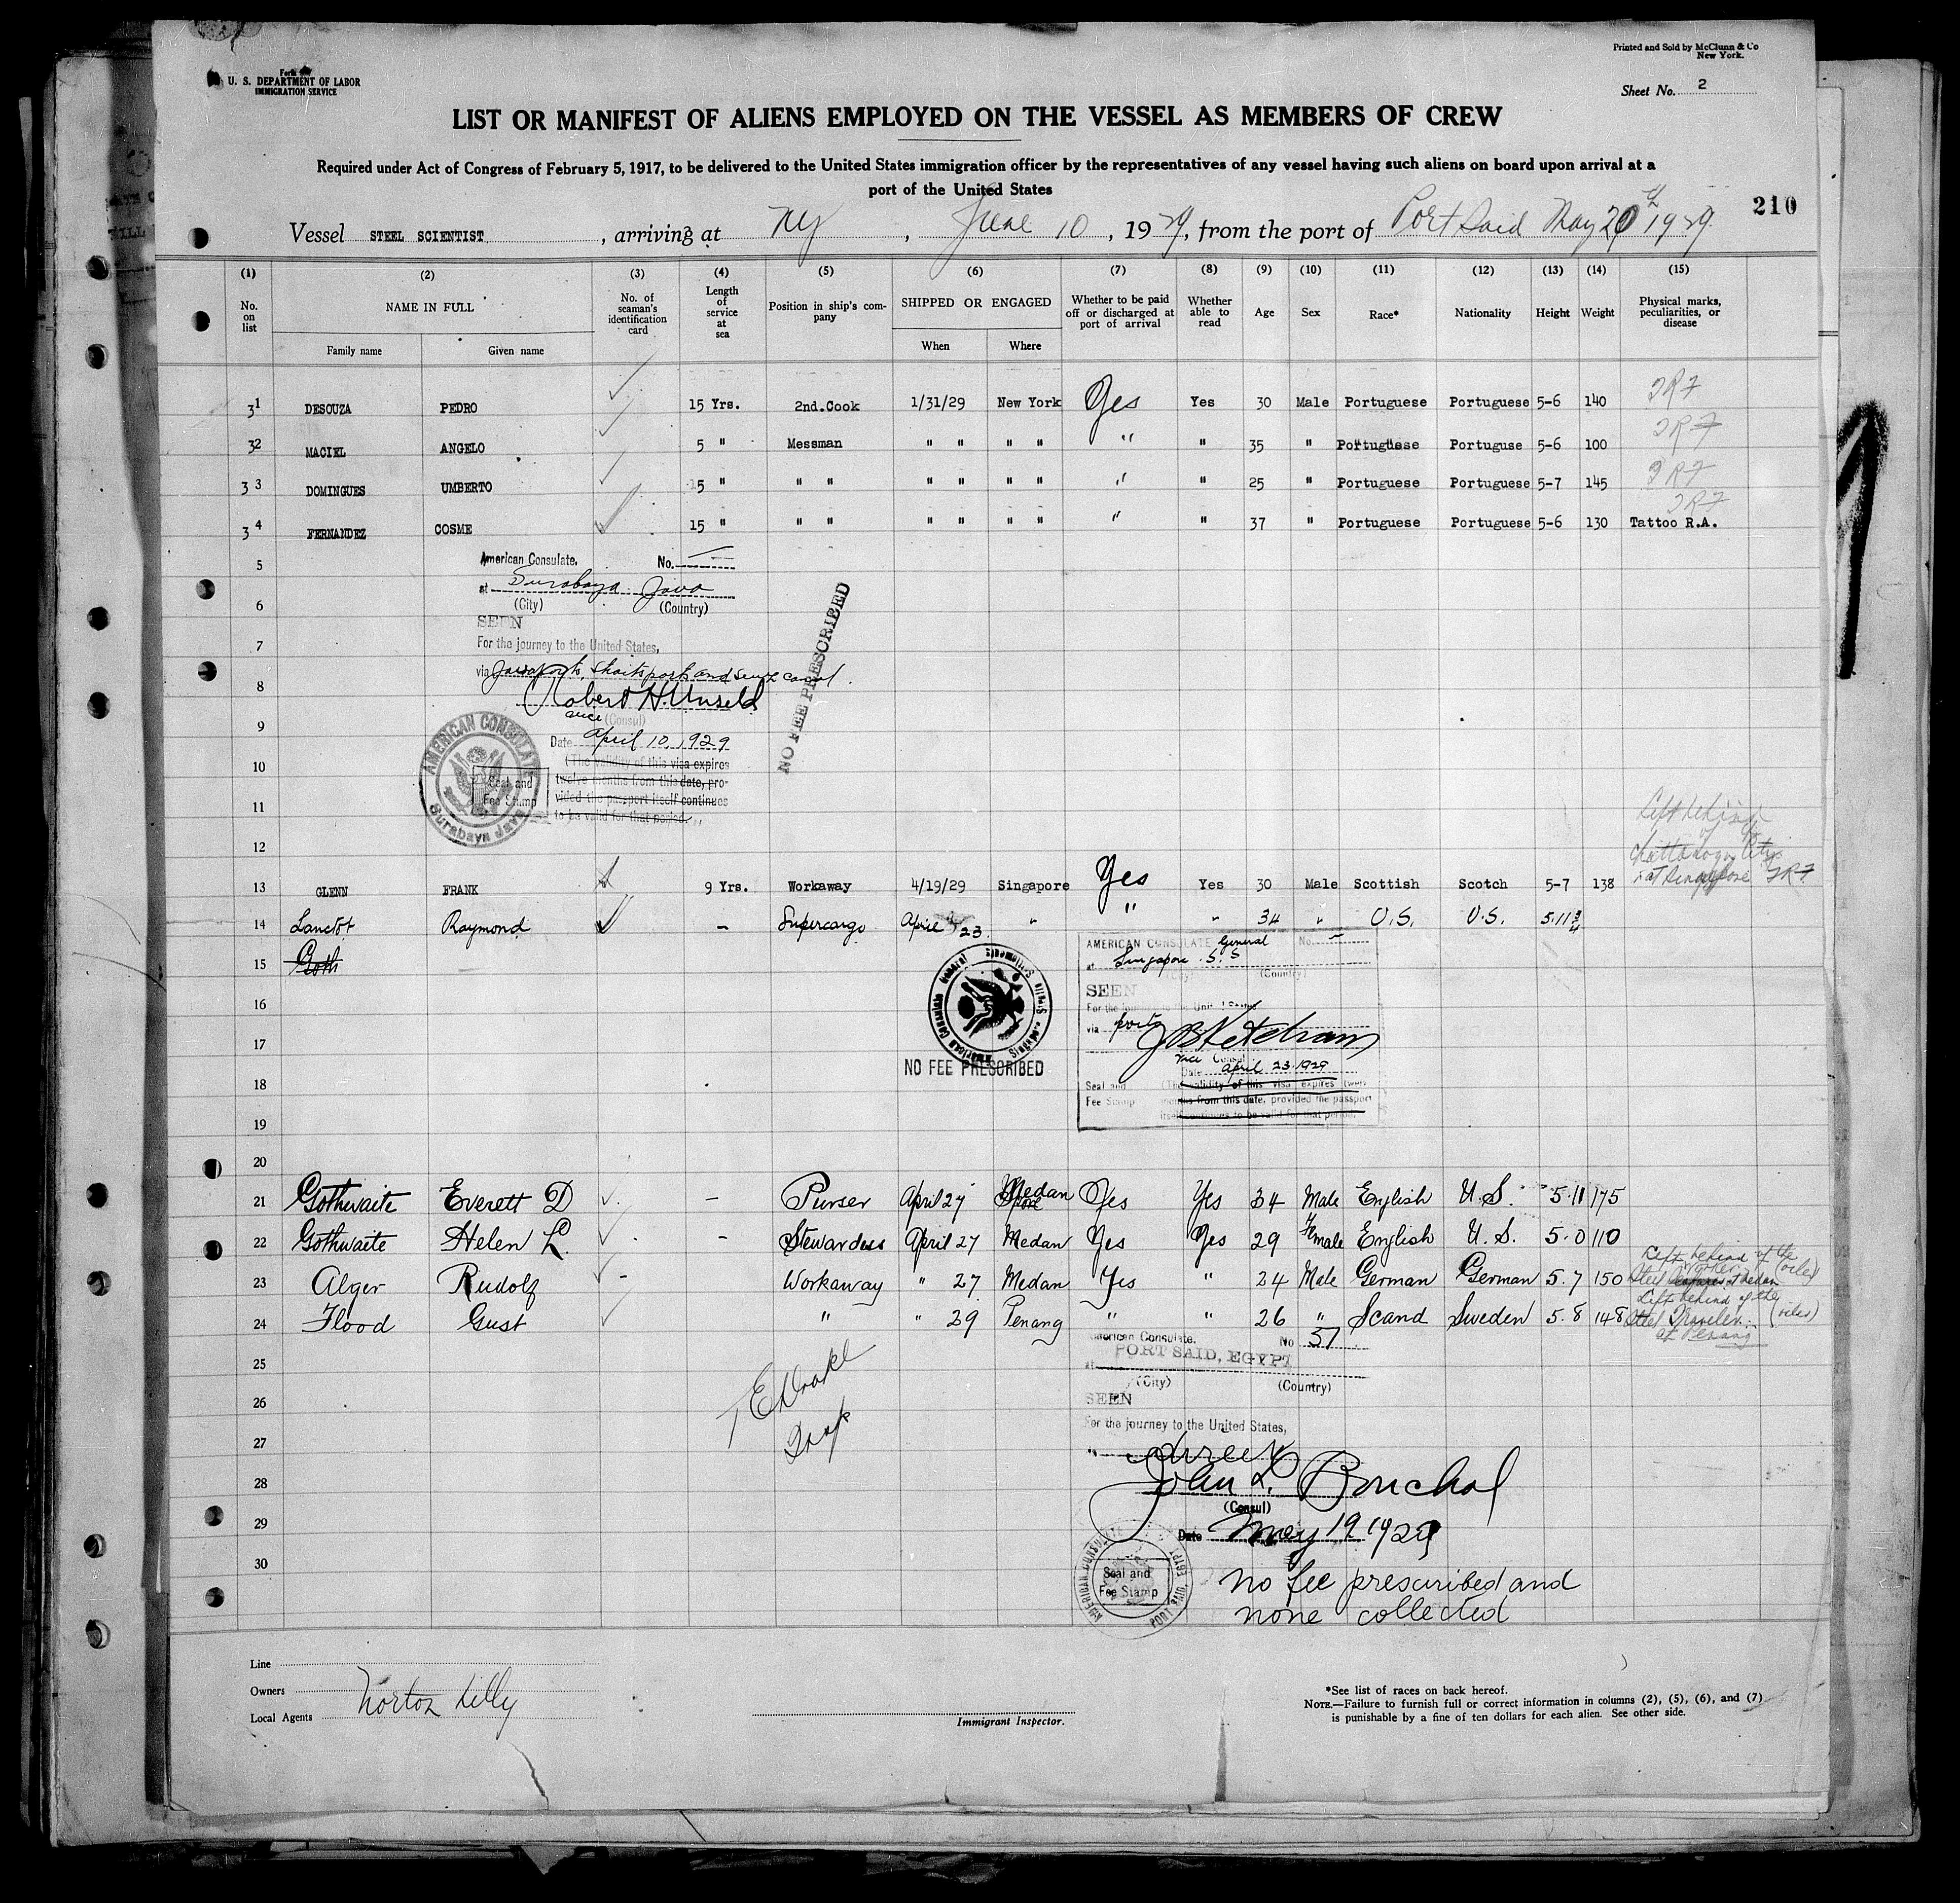 Printed and Sold by McClunn & Co
New York.
Form
U. S. DEPARTMENT OF LABOR
IMMIGRATION SERVICE
Sheet No. 2
LIST OR MANIFEST OF ALIENS EMPLOYED ON THE VESSEL AS MEMBERS OF CREW
Required under Act of Congress of February 5, 1917, to be delivered to the United States immigration officer by the representatives of any vessel having such aliens on board upon arrival at a
port of the United States
210
Vessel STEEL SCIENTIST, arriving at NY, June 10, 1929, from the port of Port Said May 20th 1929
(1) (2) (3) (4) (5) (6) (7) (8) (9) (10) (11) (12) (13) (14) (15)
No. on list NAME IN FULL No. of seaman's identification card Length of service at sea Position in ship's company SHIPPED OR ENGAGED Whether to be paid off or discharged at port of arrival Whether able to read Age Sex Race* Nationality Height Weight Physical marks, peculiarities, or disease
Family name Given name When Where
31 DESOUZA PEDRO 15 Yrs. 2nd.Cook 1/31/29 New York Yes Yes 30 Male Portuguese Portuguese 5-6 140
32 MACIEL ANGELO 5 " Messman " " " " " " 35 " Portuguese Portuguse 5-6 100
33 DOMINGUES UMBERTO 5 " " " " " " " " " 25 " Portuguese Portuguese 5-7 145
34 FERNANDEZ COSME 15 " " " " " " " " " 37 " Portuguese Portuguese 5-6 130 Tattoo R.A.
5 American Consulate, No.
at Surabaya Java
6 (City) (Country)
SEEN
7 For the journey to the United States,
via Java ports, Straits ports and Suez Canal.
8 Robert H. Unseld
vice (Consul)
9 Date April 10, 1929
10 (The validity of this visa expires
twelve months from this date, pro-
11 vided the passport itself continues
to be valid for that period.
Seal and
Fee Stamp
AMERICAN CONSULATE
Surabaya Java
NO FEE PRESCRIBED
12
Left behind
of
Chattanooga City
at Singapore
13 GLENN FRANK 9 Yrs. Workaway 4/19/29 Singapore Yes Yes 30 Male Scottish Scotch 5-7 138
14 Lanctot Raymond - Supercargo April 23 " " " 34 " U.S. U.S. 5.11 3/4
15 Goth
AMERICAN CONSULATE General No. -
at Singapore S.S
(City) (Country)
SEEN
16 For the journey to the United States
via ports
17 J B Ketcham
vice Consul
Date April 23 1929
18 Seal and (The validity of this visa expires twelve
Fee Stamp months from this date, provided the passport
itself continues to be valid for that period.
American Consulate General Straits Settlements
NO FEE PRESCRIBED
19
20
21 Gothwaite Everett D - Purser April 27 Medan Yes Yes 34 Male English U.S. 5.11 175
22 Gothwaite Helen L. - Stewardess April 27 Medan Yes Yes 29 Female English U.S. 5.0 110
23 Alger Rudolf - Workaway " 27 Medan Yes " 24 Male German German 5.7 150 Left behind of the
Steel Medan
24 Flood Gust " " 29 Penang " " 26 " Scand Sweden 5.8 148 Left behind of the
Steel Traveler
at Penang
25 American Consulate, No 37
PORT SAID, EGYPT
at
(City) (Country)
26 SEEN
For the journey to the United States,
27 direct
28 John L. Bouchal
(Consul)
29 Date May 19 1929
30 Seal and
Fee Stamp
AMERICAN CONSULATE PORT SAID, EGYPT
no fee prescribed and
none collected
T E Drake
Line
Owners
Local Agents Norton Lilly
Immigrant Inspector.
*See list of races on back hereof.
NOTE.—Failure to furnish full or correct information in columns (2), (5), (6), and (7)
is punishable by a fine of ten dollars for each alien. See other side.